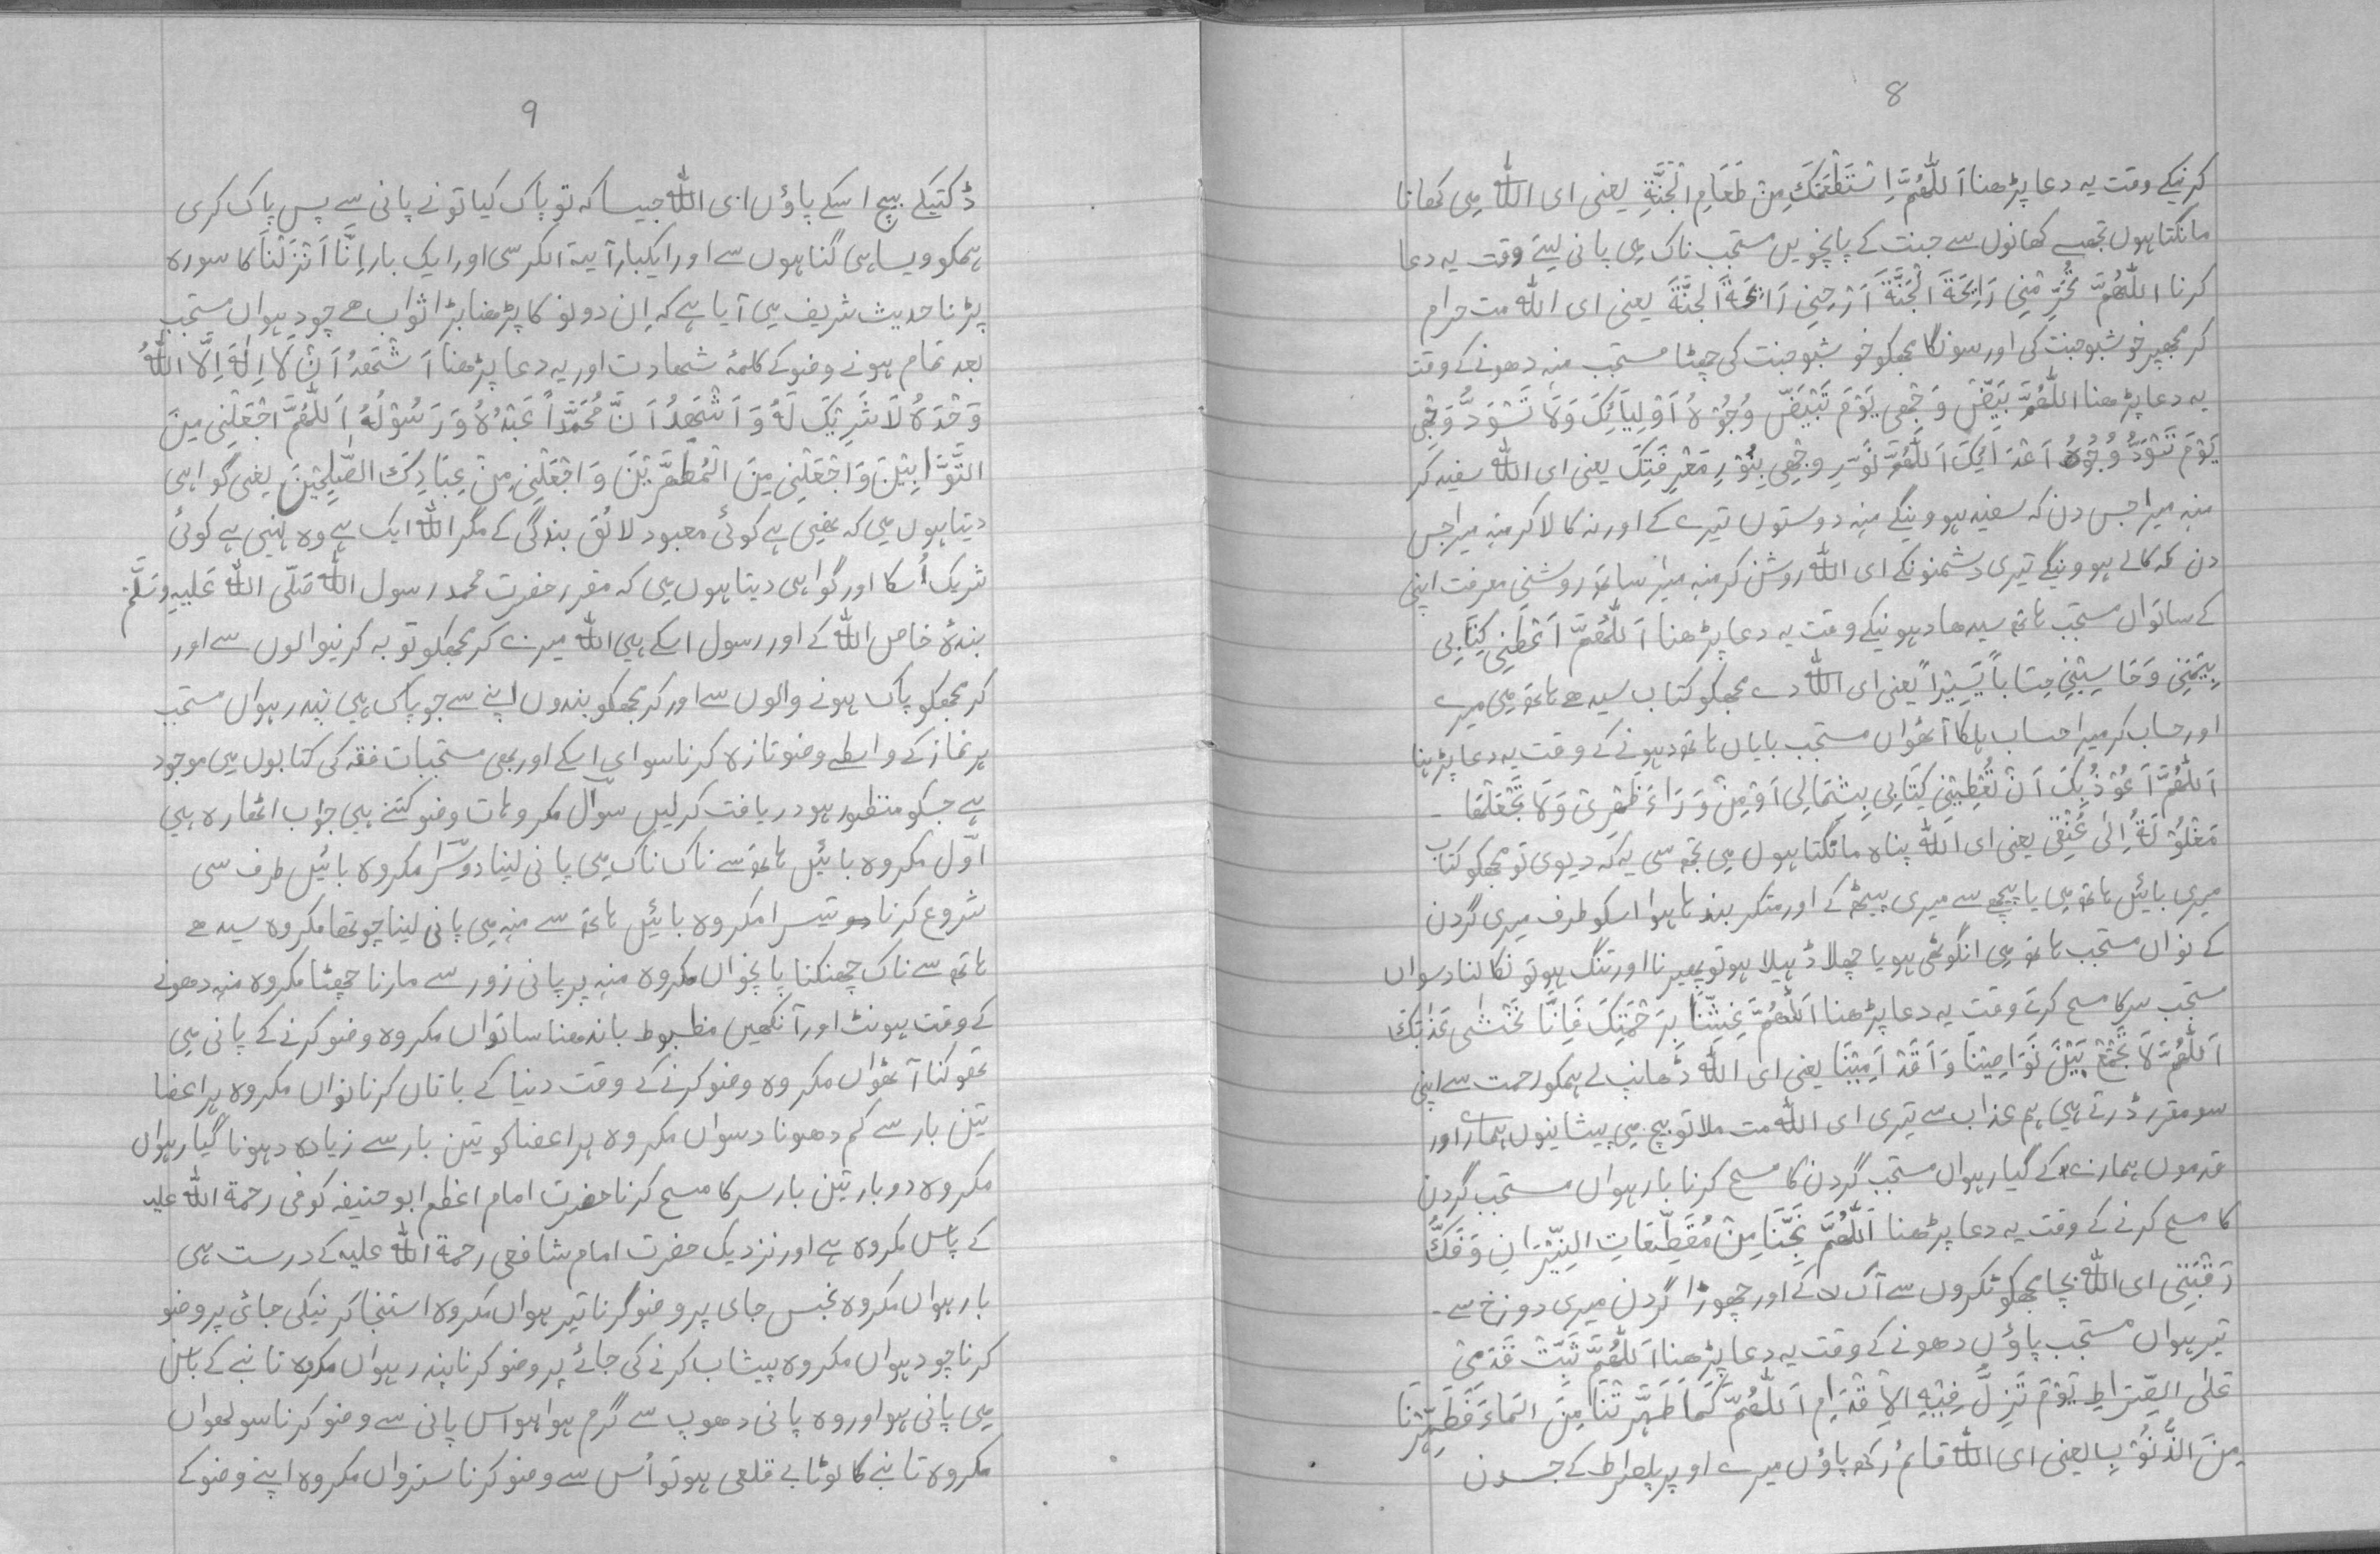 8
کرنیکے وقت یہ دعا پڑھنا اَللّٰھُمَّ اِسْتَطْعَمْتُکَ مِنْ طَعَامِ الْجَنَّةِ یعنی ای اللہ می کھانا
مانگتا ہوں تجھسے کھانوں سے جنت کے پانچویں مستحب ناک می پانی لیتے وقت یہ دعا
کرنا اللّٰھُمَّ تُحَرِّمْنِی رَایِحَةَ الْجَنَّةَ اَرْحِنِی رَایِحَةَ الجَنَّةَ یعنی ای اللہ مت حرام
کر مجھپر خوشبو جنت کی اور سونگا مجھکو خوشبو جنت کی چھٹا مستحب منہ دھونے کے وقت
یہ دعا پڑھنا اللّٰھُمَّ بَیِّضْ وَجْھِی یَوْمَ تَبْیَضّ وُجُوْہُ اَوْلِیَائِکَ وَلَا تَسْوَدُّ وَجْھِی
یَوْمَ تَسْوَدُّ وُجُوْہُ اَعْدَائِکَ اَللّٰھُمَّ نَوِّرِ وجْھِی بِنُوْرِ مَعْرِفَتِکَ یعنی ای اللہ سفید کر
منہ میرا جس دن کہ سفید ہووینگے منہ دوستوں تیرے کے اور نہ کالا کر منہ میرا جس
دن کہ کالے ہووینگے تیری دشمنونکے ای اللہ روشن کر منہ میرا ساتھ روشنی معرفت اپنی
کے ساتواں مستحب ہاتھ سیدھا دہونیکے وقت یہ دعا پڑھنا اَللّٰھُمَّ اَعْطِنِی کِتَابِی
بِیَمِیْنِی وَحَاسِبْنِی حِسَاباً یَّسِیْراً یعنی ای اللہ دے مجھکو کتاب سیدھے ہاتھ می میرے
اور حساب کر میرا حساب ہلکا آٹھواں مستحب بایاں ہاتھ دہونے کے وقت یہ دعا پڑہنا
اَللّٰھُمَّ اَعُوْذُبِکَ اَنْ تُعْطِیْنِی کِتَابِی بِشِمَالِی اَوْمِنْ وَرَاءَ ظَھْرِیْ وَلَا تَجْعَلْھَا -
مَغْلُوْلَةً اِلٰی عُنْقِی یعنی ای اللہ پناہ مانگتا ہوں می تجھ سی یہ کہ دیوی تو مجھکو کتاب
میری بائیں ہاتھ می یا پیچھے سے میری پیٹھ کے اور متکر بندہا ہوا اسکو طرف میری گردن
کے نواں مستحب ہاتھ می انگوٹھی ہو یا چھلا ڈھیلا ہو تو پھیرنا اور تنگ ہو تو نکالنا دسواں
مستحب سر کا مسح کرتے وقت یہ دعا پڑھنا اَللّٰھُمَّ غَشِّنَا بِرَحْمَتِکَ فَاِنَّا نَخْشٰی عَذَابَکَ
اَللّٰھُمَّ لَا تَجْمَعْ بَیْنَ نَوَاصِیْنَا وَاَقْدَامِنَا یعنی ای اللہ ڈھانپ لے ہمکو رحمت سے اپنی
سو مقرر ڈرتے ہیں ہم عذاب سے تیری ای اللہ مت ملا تو بیچ می پیشانیوں ہمارے اور
قدموں ہمارے کے گیارہواں مستحب گردن کا مسح کرنا بارہواں مستحب گردن
کا مسح کرنے کے وقت یہ دعا پڑھنا اَللّٰھُمَّ نَجِّنَا مِنْ مُقَطِّعَاتِ النِّیْرَانِ وَفَکَّ
رَقَبَتِی ای اللہ بچا مجھکو ٹکروں سے آگ کے اور چھوڑا گردن میری دوزخ سے -
تیرہواں مستحب پاؤں دھونے کے وقت یہ دعا پڑھنا اَللّٰھُمَّ ثَبِّتْ قَدَمِیْ
عَلٰی الصِّرَاطِ یَوْمَ تَزِلُّ فِیْہِ الْاَقْدَامِ اَللّٰھُمَّ کَمَا طَھَّرْتَنَا مِنَ الْمَاءَ فَطَھِّرْنَا
مِنَ الذُّنُوْبِ یعنی ای اللہ قائم رکھ پاؤں میرے اوپر پلصراط کے جسدن
9
ڈکنیکے بیچ اسکے پاؤں ای اللہ جیسا کہ تو پاک کیا تونے پانی سے پس پاک کری
ہمکو ویسا ہی گناہوں سے اور ایکبار آیة الکرسی اور ایک بار اِنَّا اَنْزَلْنَا کا سورہ
پڑنا حدیث شریف می آیا ہے کہ اِن دونو کا پڑھنا بڑا ثواب ھے چودہواں مستحب
بعد تمام ہونے وضو کے کلمۂ شھادت اور یہ دعا پڑھنا اَشْھَدُ اَنْ لَّا اِلٰہَ اِلَّا اللہُ
وَحْدَہٗ لَا شَرِیْکَ لَہٗ وَاَشْھَدُ اَنَّ مُحَمَّداً عَبْدُہٗ وَرَسُوْلُہٗ اَللّٰھُمَّ اجْعَلْنِی مِنَ
التَّوَّابِیْنَ وَاجْعَلْنِی مِنَ الْمُطَھِّرِیْنَ وَاجْعَلْنِی مِنْ عِبَادِکَ الصّٰلِحِیْنَ یعنی گواہی
دیتا ہوں می کہ نھیں ہے کوئی معبود لائق بندگی کے مگر اللہ ایک ہے وہ نہیں ہے کوئی
شریک اُسکا اور گواہی دیتا ہوں می کہ مقرر حضرت محمد رسول اللہ صَلّی اللہ عَلَیہِ وَسَلَّمْ
بندۂ خاص اللہ کے اور رسول اسکے ہیں اللہ میرے کر مجھکو توبہ کرنیوالوں سے اور
کر مجھکو پاک ہونے والوں سے اور کر مجھکو بندوں اپنے سے جو پاک ہیں پندرہواں مستحب
ہر نماز کے واسطے وضو تازہ کرنا سوای اسکے اور بھی مستحبات فقہ کی کتابوں می موجود
ہے جسکو منظور ہو دریافت کرلیں سوال مکروہات وضو کتنے ہیں جواب اٹھارہ ہیں
اوّل مکروہ بائیں ہاتھ سے ناک ناک می پانی لینا دوسرا مکروہ بائیں طرف سی
شروع کرنا تیسرا مکروہ بائیں ہاتھ سے منہ می پانی لینا چوتھا مکروہ سیدھے
ہاتھ سے ناک چھنکنا پانچواں مکروہ منہ پر پانی زور سے مارنا چھٹا مکروہ منہ دھونے
کے وقت ہونٹ اور آنکھیں مظبوط باندھنا ساتواں مکروہ وضو کرنے کے پانی می
تھوکنا آٹھواں مکروہ وضو کرنے کے وقت دنیا کے باتاں کرنا نواں مکروہ ہر اعضا
تین بار سے کم دھونا دسواں مکروہ ہر اعضا کو تین بار سے زیادہ دہونا گیارہواں
مکروہ دوبار تین بار سر کا مسح کرنا حضرت امام اعظم ابو حنیفہ کوفی رحمة اللہ علیہ
کے پاس مکروہ ہے اور نزدیک حضرت امام شافعی رحمة اللہ علیہ کے درست ہی
بارہواں مکروہ نجس جای پر وضو کرنا تیرہواں مکروہ استنجا کرنیکی جائی پر وضو
کرنا چودہواں مکروہ پیشاب کرنے کی جائے پر وضو کرنا پندرہواں مکروہ تانبے کے باسن
می پانی ہو اور وہ پانی دھوپ سے گرم ہوا ہو اس پانی سے وضو کرنا سولھواں
مکروہ تانبے کا لوٹا بے قلعی ہو تو اُس سے وضو کرنا سترواں مکروہ اپنے وضو کے